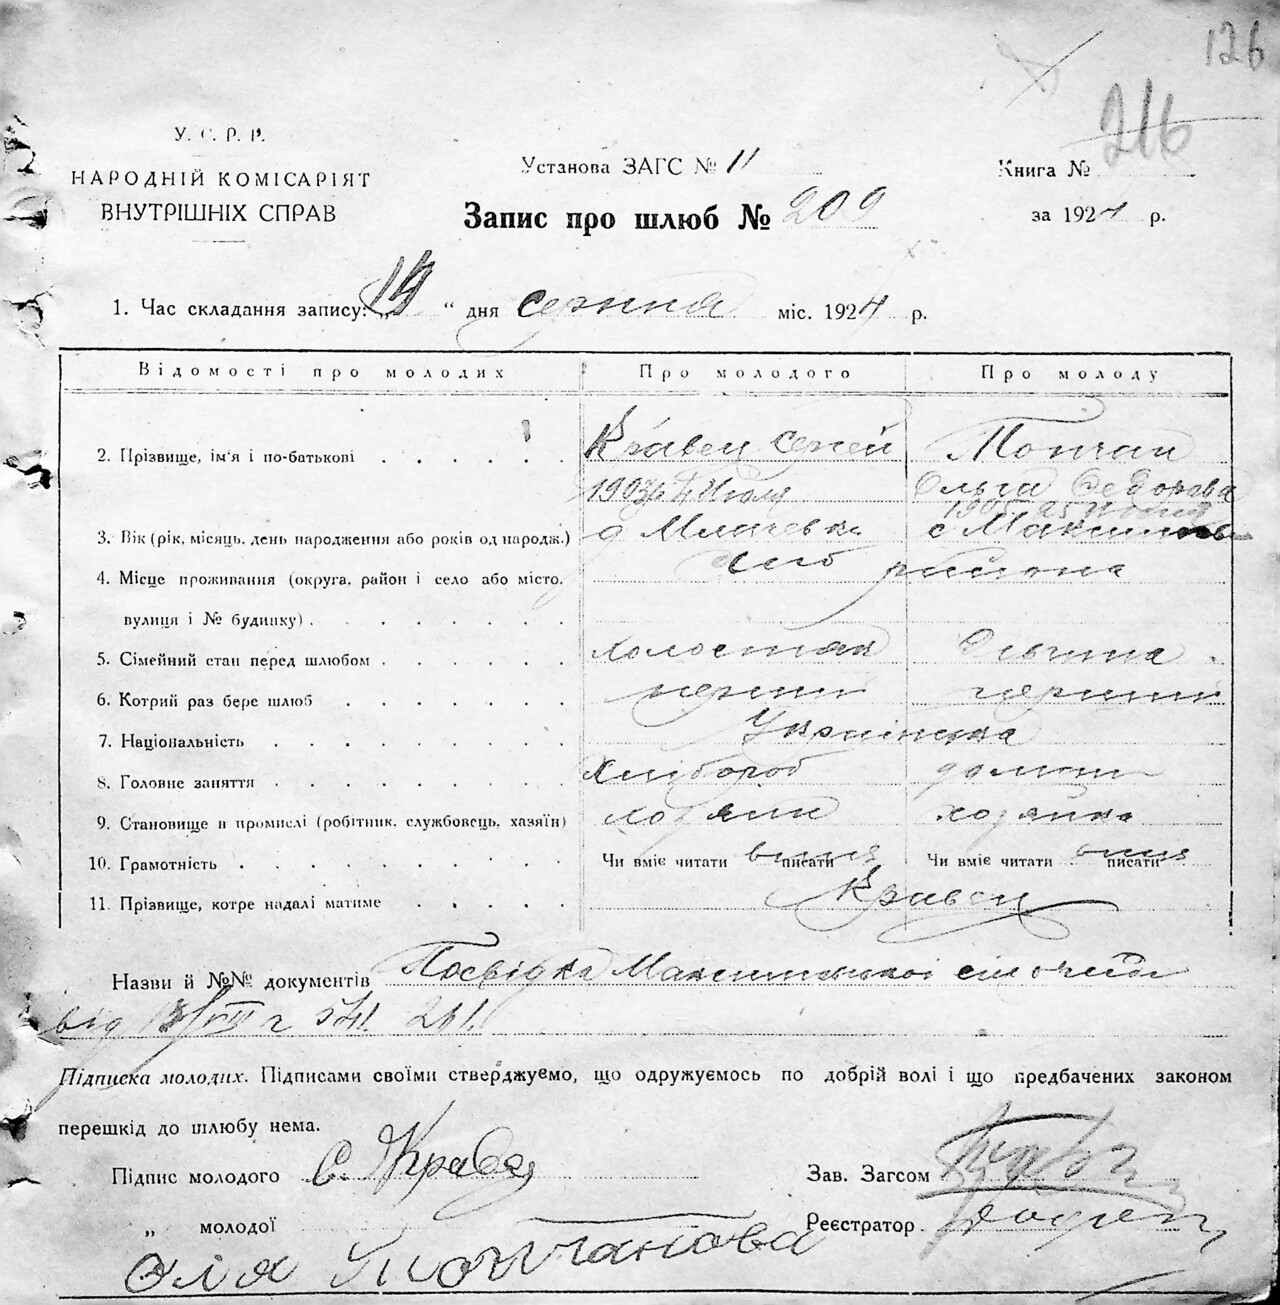 126
216
У. С. Р. Р.
НАРОДНІЙ КОМІСАРІЯТ
ВНУТРІШНІХ СПРАВ
Установа ЗАГС № 11
Запис про шлюб № 209
Книга №
за 1924 р.
1. Час складання запису: „14“ дня серпня міс. 1924 р.
Відомості про молодих Про молодого Про молоду
2. Прізвище, ім'я і по-батькові Кравец Сергей Топчан
Июля Ольга Федорова
1905 25
3. Вік (рік, місяць, день народження або років од народж.) с
4. Місце проживання (округа, район і село або місто, района
вулиця і № будинку)
5. Сімейний стан перед шлюбом холостяк Дівчина
6. Котрий раз бере шлюб перший перший
7. Національність Українська
8. Головне заняття Хлібороб
9. Становище в промислі (робітник, службовець, хазяїн) хозяин хозяйка
10. Грамотність Чи вміє читати писати Чи вміє читати писати
11. Прізвище, котре надалі матиме Кравец
Назви й №№ документів Посвідка сільради
від
Підписка молодих. Підписами своїми стверджуємо, що одружуємось по добрій волі і що предбачених законом
перешкід до шлюбу нема.
Підпис молодого С. Кравец Зав. Загсом
„ молодої Реєстратор
Оля Топчанова